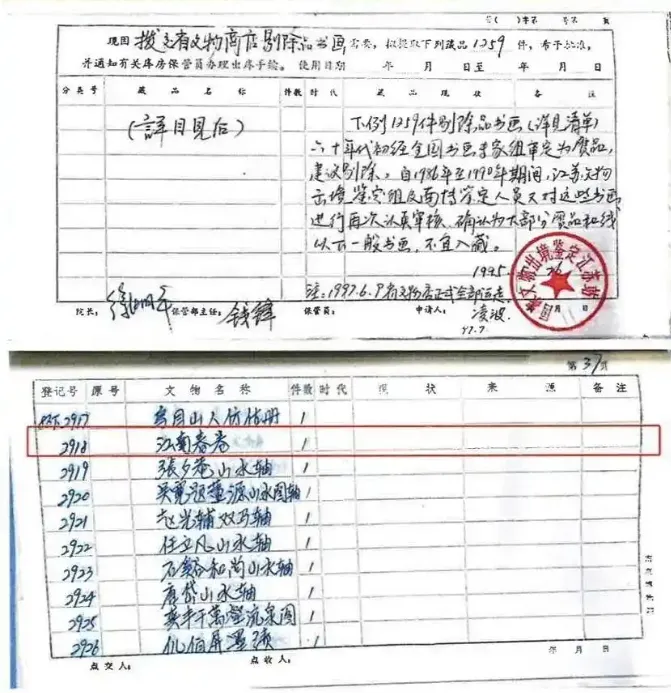 第( )字第 号第 页
现因 拨交省文物商店剔除品书画 需要，拟提取下列藏品1259件，希予批准，
并通知有关库房保管员办理出库手续。使用日期 年 月 日至 年 月 日
分类号 藏品名称 件数 时代 藏品现状 备注
(详目见后)
下列1259件剔除品书画(详见清单)
六十年代初经全国书画专家组审定为赝品，
建议剔除。自1986年至1990年期间，江苏文物
出境鉴定组及南博鉴定人员又对这些书画
进行再次认真审核，确认为大部分赝品和线
以下一般书画，不宜入藏。
1995.
国家文物出境鉴定江苏站
月 日
注:1997.6.9省文物店正式全部运走
院长: 徐湖平 保管部主任: 钱锋 保管员: 申请人: 凌波
97.7.
第37页
登记号 原号 文物名称 件数 时代 现状 来源 备注
2917 乌目山人仿古册 1
2918 江南春卷 1
2919 张夕庵山水轴 1
2920 吴宽题董源山水图轴 1
2921 赵光辅双马轴 1
2922 任立凡山水轴 1
2923 石溪和尚山水轴 1
2924 唐岱山水轴 1
2925 流泉图 1
2926 仇伯屏 1
点交人: 点收人: 年 月 日